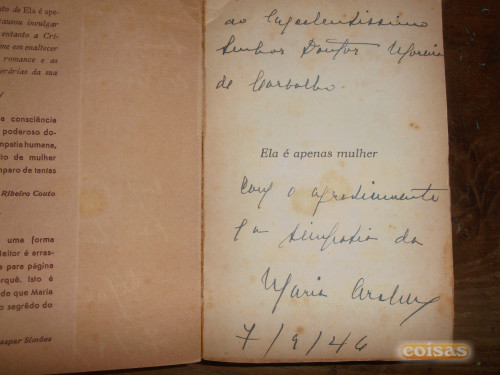 to de Ela é ape-
causou invulgar
entanto a Crí-
me em enaltecer
romance e as
erárias da sua
a consciência
poderoso do-
mpatia humana,
to de mulher
mparo de tantas
Ribeiro Couto
uma forma
leitor é erras-
a para página
orquê. Isto é
de que Maria
o segrêdo do
aspar Simões
ao Excelentíssimo
Senhor Doutor Moreira
de Carvalho.
Ela é apenas mulher
Com o agradecimento
e a simpatia da
Maria Archer
7/9/46
coisas